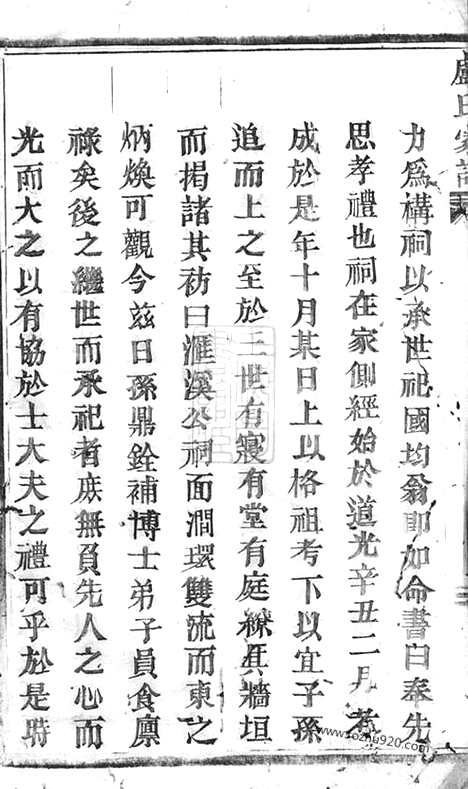 盧氏家譜
力爲構祠以承世祀國均翁即如命書曰奉先
思孝禮也祠在家側經始於道光辛丑二月考
成於是年十月某日上以格祖考下以宜子孫
追而上之至於三世有寢有堂有庭繚其牆垣
而揭諸其祊曰滙溪公祠面澗環雙流而東之
炳煥可觀今茲日孫鼎銓補博士弟子員食廩
祿矣後之繼世而承祀者庶無負先人之心而
光而大之以有協於士大夫之禮可乎於是時
www.rozhu920.com